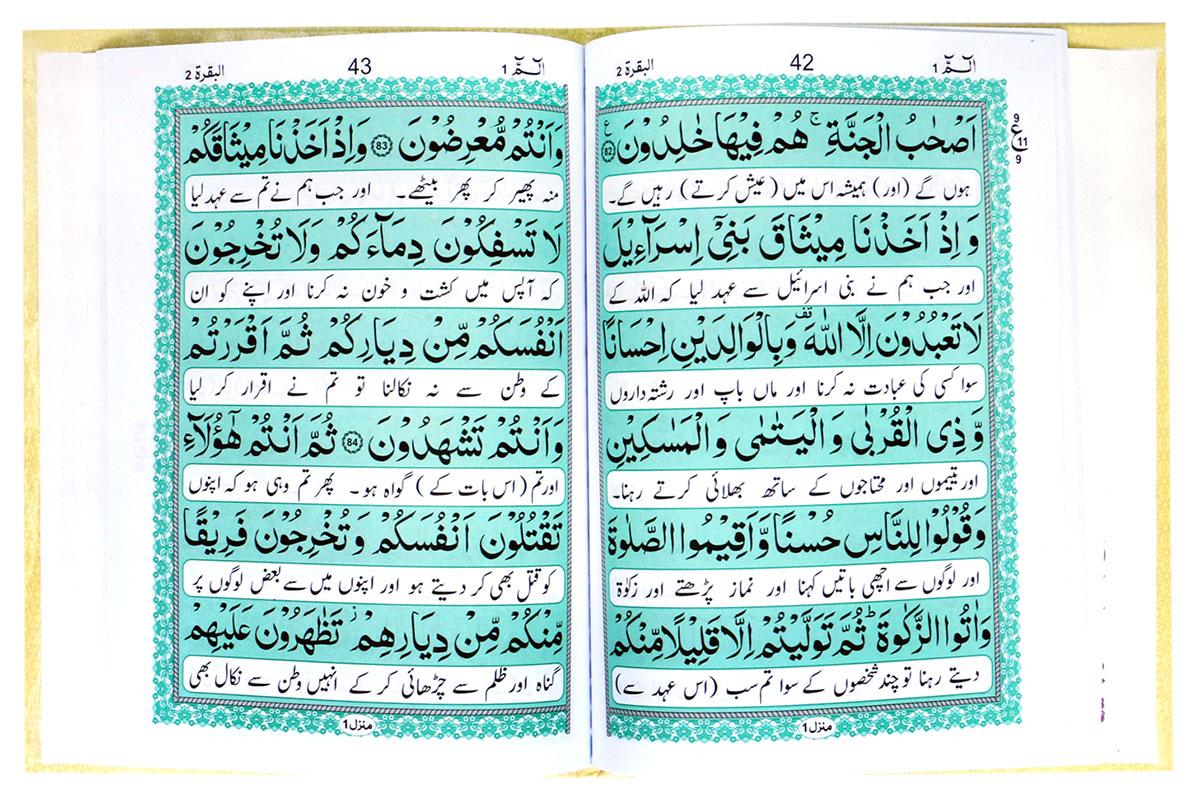 الٓمّٓ 1 42 البقرة 2
اَصْحٰبُ الْجَنَّةِ ۚ هُمْ فِيْهَا خٰلِدُوْنَ ﴿82﴾ ع
ع 9 11 9
ہوں گے (اور) ہمیشہ اس میں (عیش کرتے) رہیں گے۔
وَاِذْ اَخَذْنَا مِيْثَاقَ بَنِيْٓ اِسْرَآءِيْلَ
اور جب ہم نے بنی اسرائیل سے عہد لیا کہ اللہ کے
لَا تَعْبُدُوْنَ اِلَّا اللّٰهَ قف وَبِالْوَالِدَيْنِ اِحْسَانًا
سوا کسی کی عبادت نہ کرنا اور ماں باپ اور رشتہ داروں
وَّذِى الْقُرْبٰى وَالْيَتٰمٰى وَالْمَسٰكِيْنِ
اور یتیموں اور محتاجوں کے ساتھ بھلائی کرتے رہنا۔
وَقُوْلُوْا لِلنَّاسِ حُسْنًا وَّاَقِيْمُوا الصَّلٰوةَ
اور لوگوں سے اچھی باتیں کہنا اور نماز پڑھتے اور زکوٰة
وَاٰتُوا الزَّكٰوةَ ؕ ثُمَّ تَوَلَّيْتُمْ اِلَّا قَلِيْلًا مِّنْكُمْ
دیتے رہنا تو چند شخصوں کے سوا تم سب (اس عہد سے)
منزل 1
الٓمّٓ 1 43 البقرة 2
وَاَنْتُمْ مُّعْرِضُوْنَ ﴿83﴾ وَاِذْ اَخَذْنَا مِيْثَاقَكُمْ
منہ پھیر کر پھر بیٹھے۔ اور جب ہم نے تم سے عہد لیا
لَا تَسْفِكُوْنَ دِمَآءَكُمْ وَلَا تُخْرِجُوْنَ
کہ آپس میں کشت و خون نہ کرنا اور اپنے کو ان
اَنْفُسَكُمْ مِّنْ دِيَارِكُمْ ثُمَّ اَقْرَرْتُمْ
کے وطن سے نہ نکالنا تو تم نے اقرار کر لیا
وَاَنْتُمْ تَشْهَدُوْنَ ﴿84﴾ ثُمَّ اَنْتُمْ هٰٓؤُلَآءِ
اور تم (اس بات کے) گواہ ہو۔ پھر تم وہی ہو کہ اپنوں
تَقْتُلُوْنَ اَنْفُسَكُمْ وَتُخْرِجُوْنَ فَرِيْقًا
کو قتل بھی کر دیتے ہو اور اپنوں میں سے بعض لوگوں پر
مِّنْكُمْ مِّنْ دِيَارِهِمْ ز تَظٰهَرُوْنَ عَلَيْهِمْ
گناہ اور ظلم سے چڑھائی کر کے انہیں وطن سے نکال بھی
منزل 1